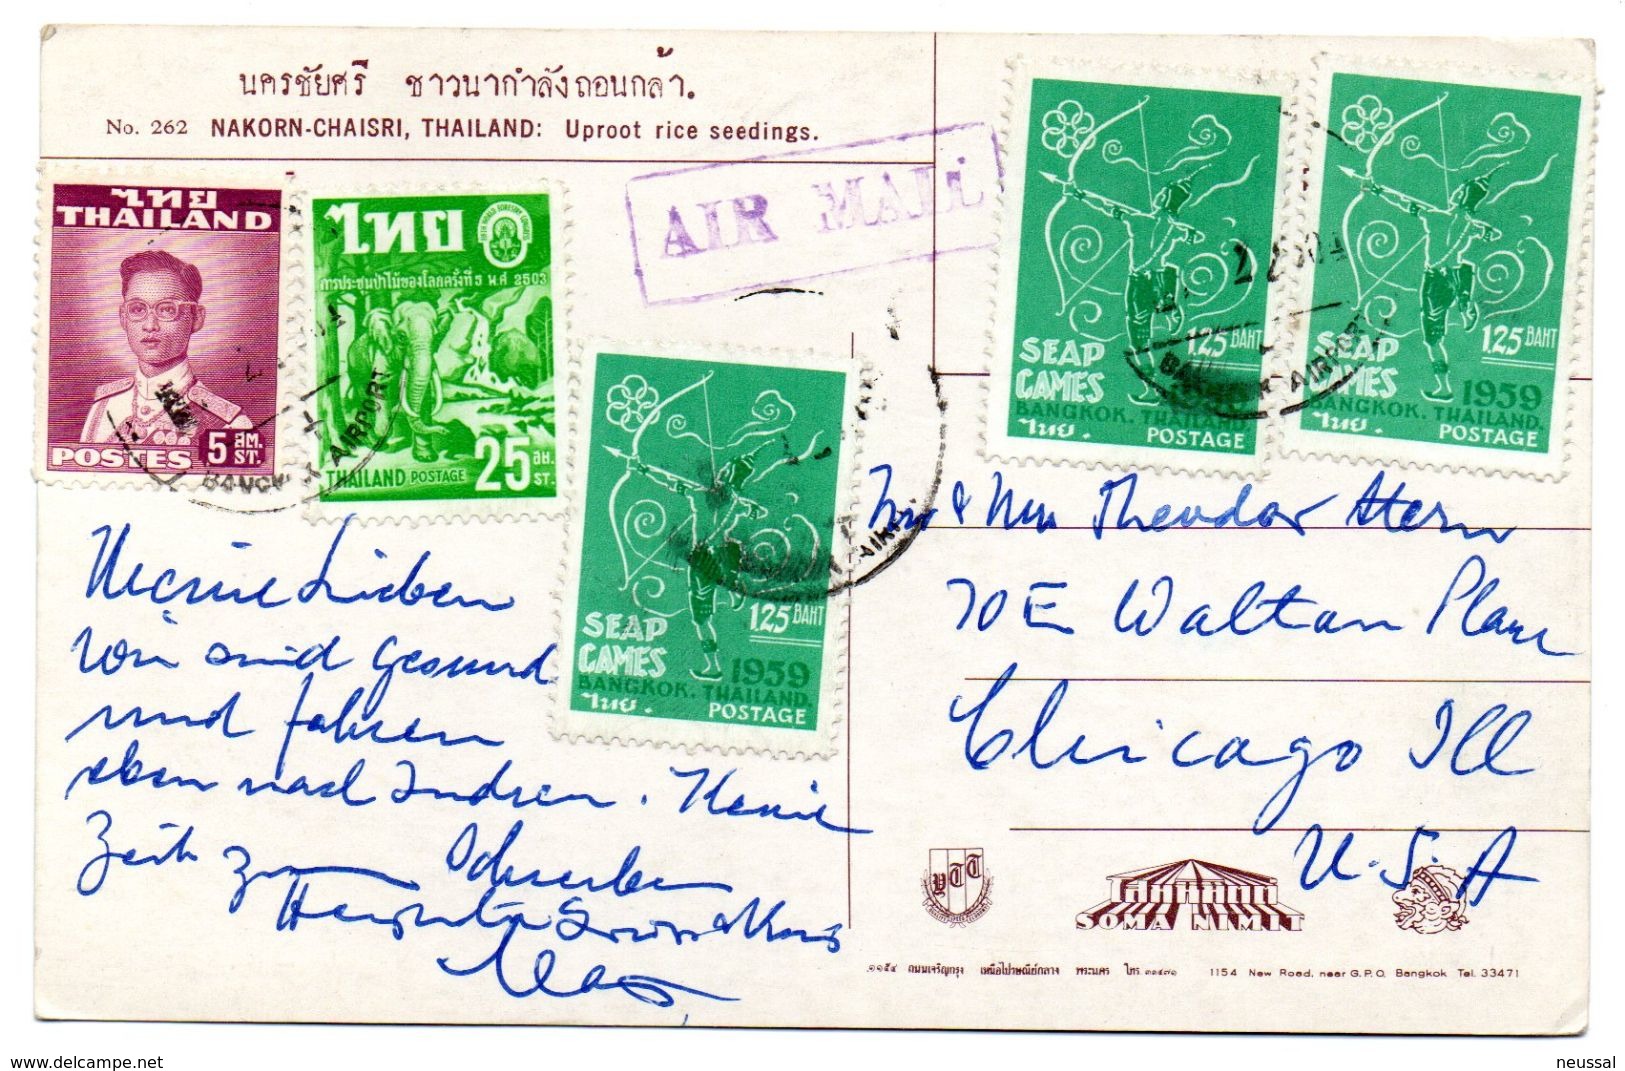 นครชัยศรี ชาวนากำลังถอนกล้า.
No. 262 NAKORN-CHAISRI, THAILAND: Uproot rice seedings.
AIR MAIL
ไทย
THAILAND
5 สต.
ST.
POSTES
ไทย
การประชุมป่าไม้ของโลกครั้งที่ 5 พ.ศ 2503
THAILAND POSTAGE 25 สต.
ST.
BANGKOK AIRPORT
1.25 BAHT
SEAP
GAMES
1959
BANGKOK. THAILAND.
ไทย. POSTAGE
1.25 BAHT
SEAP
GAMES
1959
BANGKOK. THAILAND.
ไทย. POSTAGE
1.25 BAHT
SEAP
GAMES
1959
BANGKOK. THAILAND.
ไทย. POSTAGE
BANGKOK AIRPORT
Meine Lieben
wir sind gesund
und fahren
eben nach Indien. Keine
Zeit zum Schreiben
Herzliche Grüsse
Mr & Mrs Theodor Stern
70 E Walton Place
Chicago Ill
U.S.A
SOMA NIMIT
๑๑๕๔ ถนนเจริญกรุง เหนือไปรษณีย์กลาง พระนคร โทร. ๓๓๔๗๑ 1154 New Road, near G.P.O. Bangkok Tel. 33471
neussal
delcampe.net